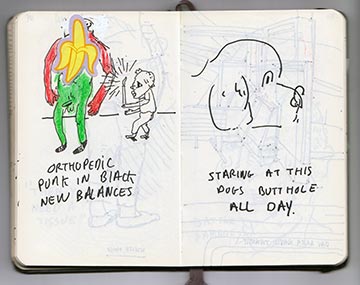 ORTHOPEDIC
PUNK IN BLACK
NEW BALANCES
STARING AT THIS
DOGS BUTTHOLE
ALL DAY.